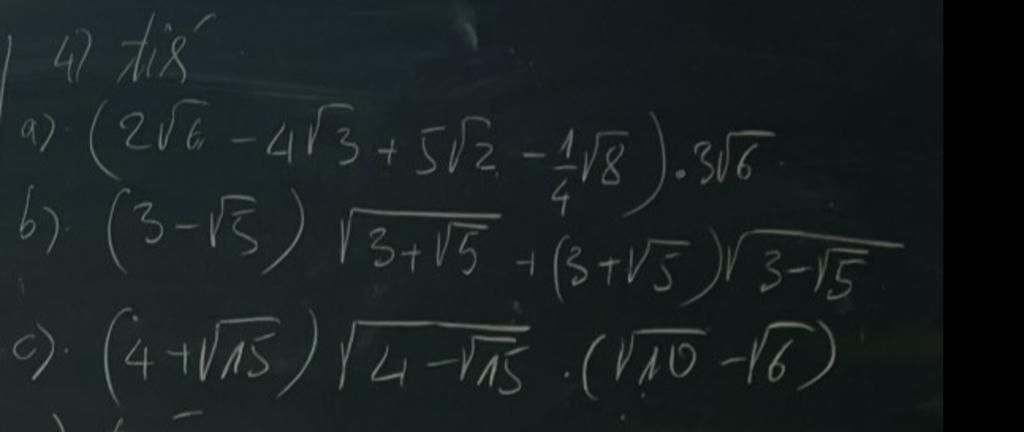 4)
a). (2√6 - 4√3 + 5√2 - 1/4√8).3√6
b). (3-√5) √(3+√5) + (3+√5)√(3-√5)
c). (4+√15) √(4-√15) .(√10 -√6)